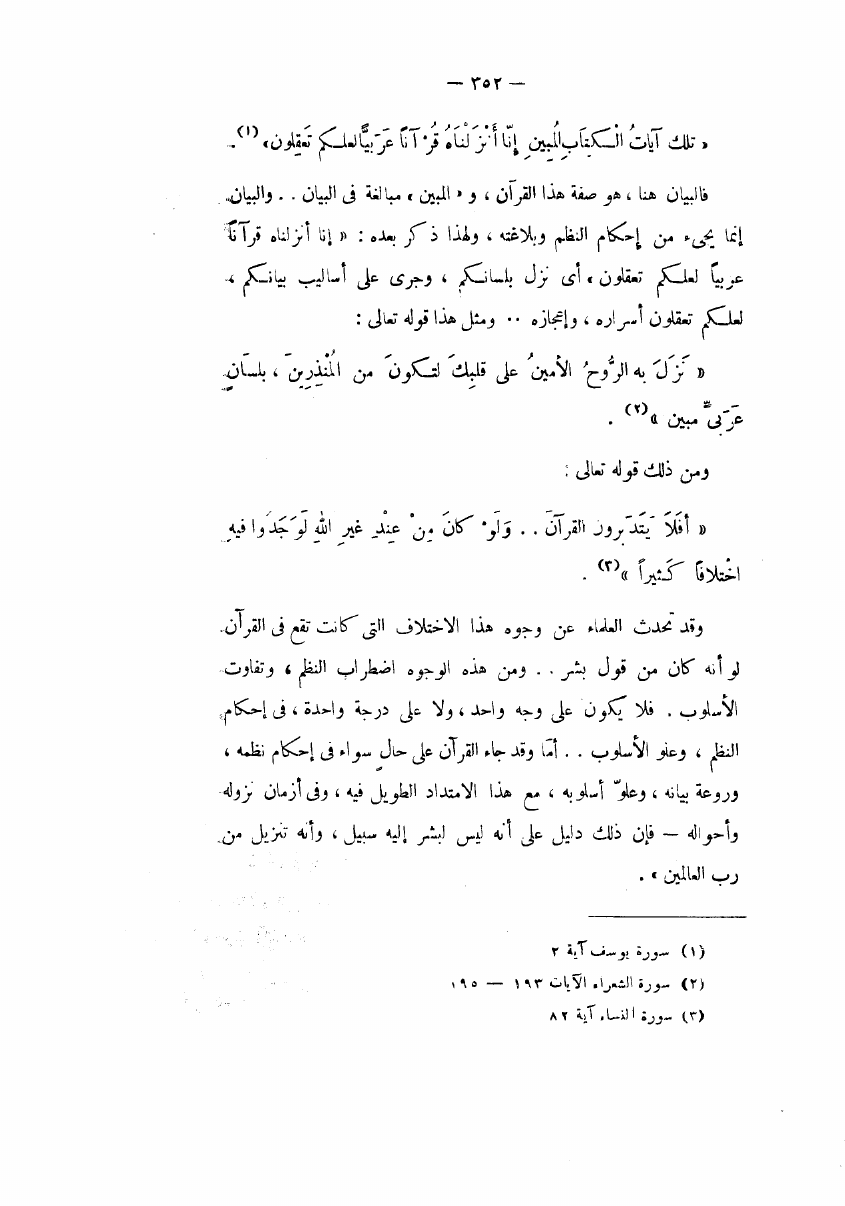 — ٣٥٢ —
« تلك آيَاتُ الْكِتَابِ الْمُبِينِ إِنَّا أَنْزَلْنَاهُ قُرْآناً عَرَبيًّا لعلكم تَعقلون»(١) .
فالبيان هنا ، هو صفة هذا القرآن ، و « المبين » مبالغة فى البيان . . والبيان
إنما يجىء من إحكام النظم وبلاغته ، ولهذا ذكر بعده : « إنا أنزلناه قرآناً
عربياً لعلكم تعقلون » أى نزل بلسانكم ، وجرى على أساليب بيانكم ،
لعلكم تعقلون أسراره ، وإعجازه ٠٠ ومثل هذا قوله تعالى :
« نَزَلَ به الرُّوحُ الأمينُ على قلبِكَ لتكونَ من المُنْذِرِينَ ، بلسَانٍ
عَرَبىٍّ مبين »(٢) .
ومن ذلك قوله تعالى :
« أفَلاَ يَتَدَبّرون القرآنَ . . وَلَوْ كانَ مِنْ عِنْدِ غيرِ اللهِ لَوَجَدُوا فيهِ
اخْتلافاً كَثيراً »(٣) .
وقد تحدث العلماء عن وجوه هذا الاختلاف التى كانت تقع فى القرآن
لو أنه كان من قول بشر . . ومن هذه الوجوه اضطراب النظم ، وتفاوت
الأسلوب . فلا يكون على وجه واحد ، ولا على درجة واحدة ، فى إحكام
النظم ، وعلو الأسلوب . . أمّا وقد جاء القرآن على حالٍ سواء فى إحكام نظمه ،
وروعة بيانه ، وعلوّ أسلوبه ، مع هذا الامتداد الطويل فيه ، وفى أزمان نزوله
وأحواله — فإن ذلك دليل على أنه ليس لبشر إليه سبيل ، وأنه تنزيل من
رب العالمين » .
(١) سورة يوسف آية ٢
(٢) سورة الشعراء الآيات ١٩٣ — ١٩٥
(٣) سورة النساء آية ٨٢